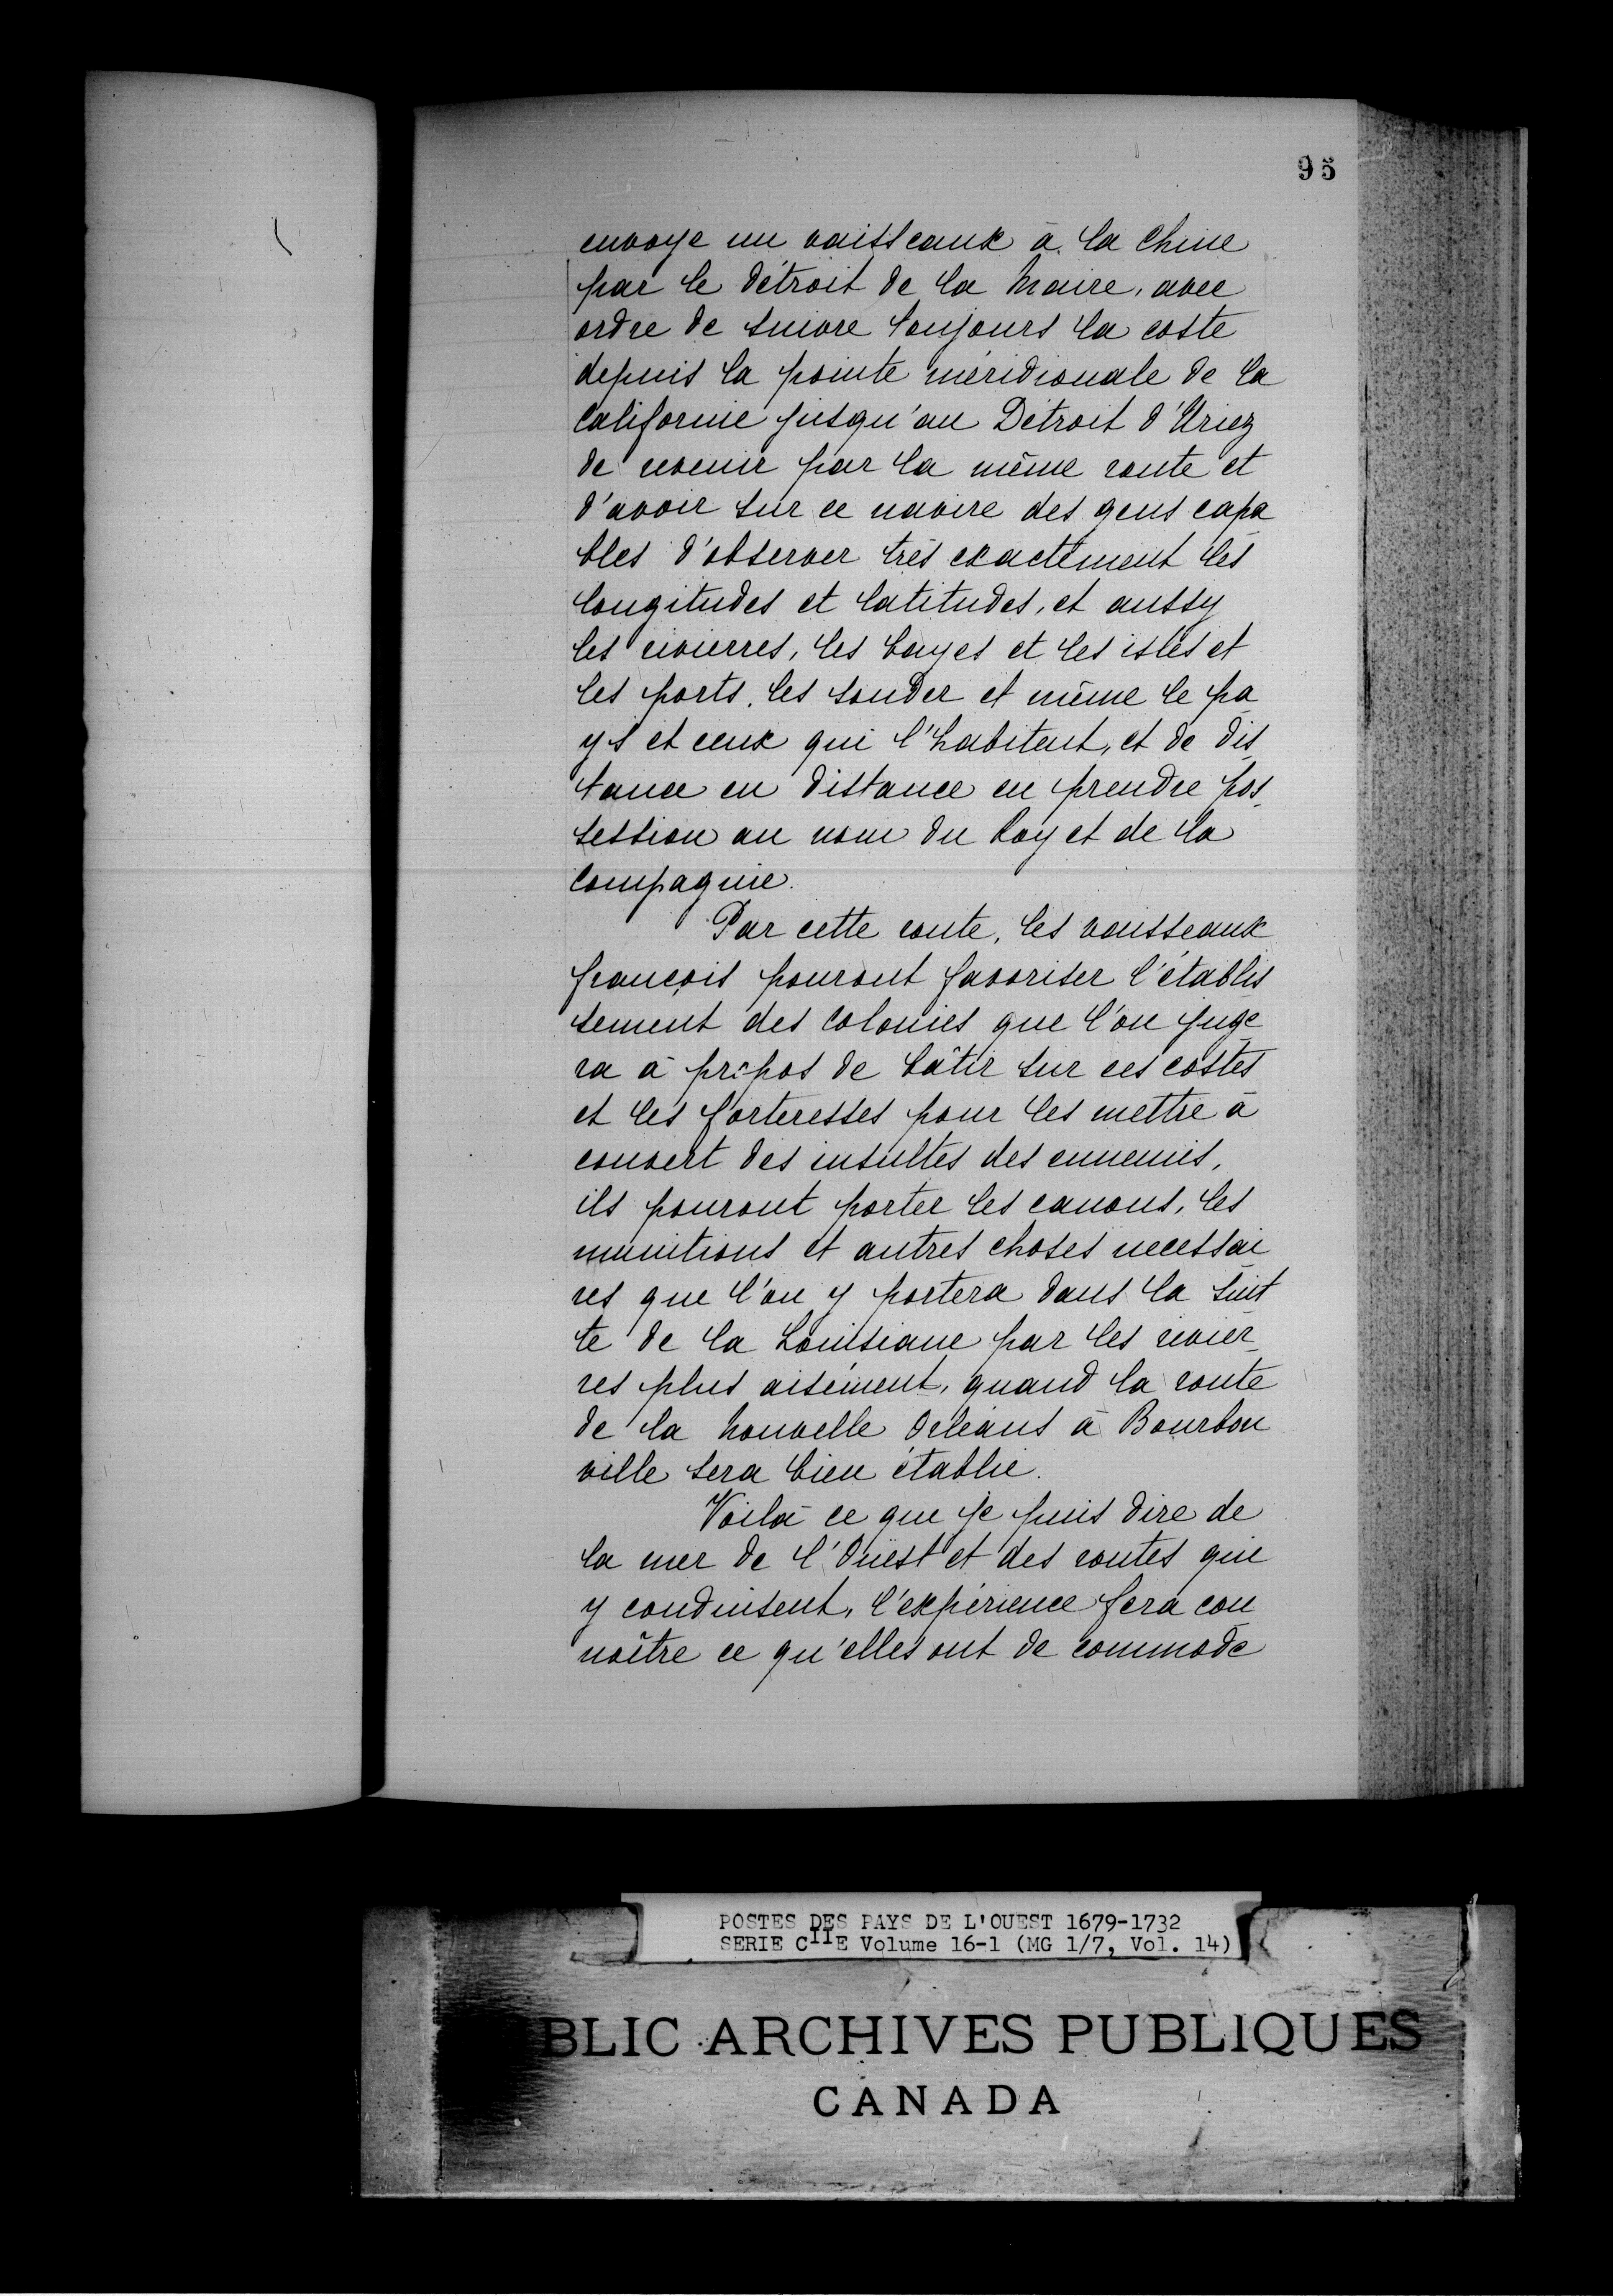 95
envoye un vaisseaux à la Chine
par le détroit de la Maire, avec
ordre de suivre toujours la coste
depuis la pointe méridionale de la
Californie jusqu'au Détroit d'Uriez
de revenir par la même route et
d'avoir sur ce navire des gens capa
bles d'observer très exactement les
longitudes et latitudes, et aussy
les rivierres, les bayes et les isles et
les ports, les sonder et même le pa
ys et ceux qui l'habitent, et de dis
tance en distance en prendre pos-
session au nom du Roy et de la
Compagnie.
Par cette route, les vaisseaux
françois pouront favoriser l'établis
sement des Colonies que l'on juge
ra à propos de bâtir sur ces costes
et les forteresses pour les mettre à
couvert des insultes des ennemis,
ils pouront porter les canons, les
munitions et autres choses necessai
res que l'on y portera dans la suit
te de la Louisiane par les rivier-
res plus aisément, quand la route
de la Nouvelle Orléans à Bourbon
ville sera bien établie.
Voilà ce que je puis dire de
la mer de l'Ouest et des routes qui
y conduisent, l'expérience fera con
noître ce qu'elles ont de commode
POSTES DES PAYS DE L'OUEST 1679-1732
SERIE CIIE Volume 16-1 (MG 1/7, Vol. 14)
BLIC ARCHIVES PUBLIQUES
CANADA